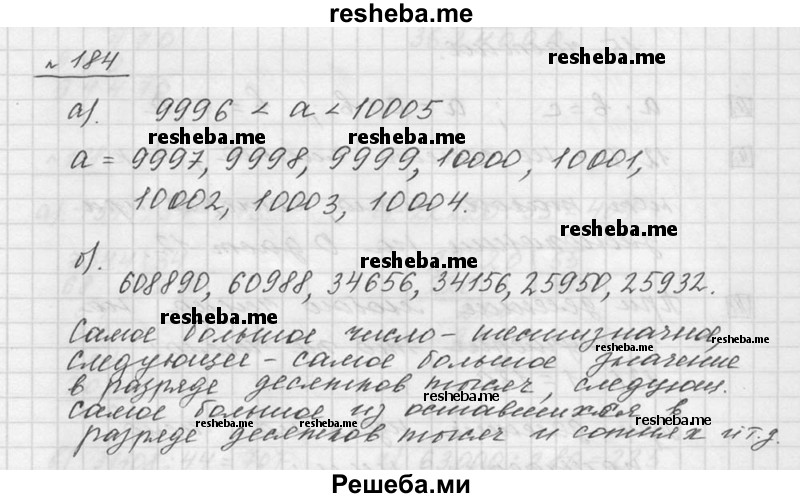 resheba.me
№ 184
resheba.me
а). 9996 < а < 10005
resheba.me
resheba.me
а = 9997, 9998, 9999, 10000, 10001,
10002, 10003, 10004.
resheba.me
resheba.me
б).
608890, 60988, 34656, 34156, 25950, 25932.
resheba.me
Самое большое число - шестизначное,
resheba.me
следующее - самое большое значение
resheba.me
в разряде десятков тысяч, следующ.
resheba.me
самое большое из оставшихся в
resheba.me
resheba.me
разряде десятков тысяч и сотнях и т.д.
Решеба.ми